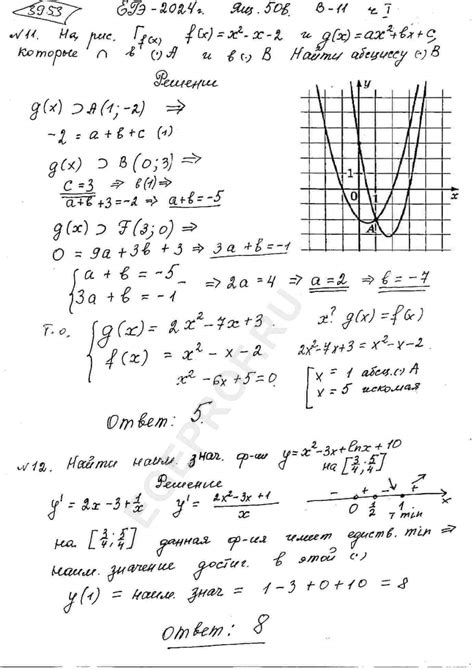 3953 ЕГЭ-2024г. Ящ. 50в. В-11 ч I
№11. На рис. Г f(x) f(x)=x²-x-2 и g(x)=ax²+bx+c,
которые ∩ в (·) A и в (·) B Найти абсциссу (·) B
Решение
g(x) ⊃ A(1;-2) ⇒
-2 = a+b+c (1)
g(x) ⊃ B(0;3) ⇒
c=3 ⇒ в(1) ⇒
a+b+3=-2 ⇒ a+b=-5
g(x) ⊃ F(3;0) ⇒
0 = 9a+3b+3 ⇒ 3a+b=-1
{ a+b=-5
3a+b=-1 ⇒ 2a=4 ⇒ a=2 ⇒ b=-7
y
1
0 1 x
A
Т.о. { g(x) = 2x²-7x+3 x? g(x)=f(x)
f(x) = x²-x-2 2x²-7x+3=x²-x-2
x²-6x+5=0 [ x=1 абсц.(·) A
x=5 искомая
Ответ: 5.
№12. Найти наим. знач. ф-ии y=x²-3x+lnx+10
на [3/4; 5/4]
Решение
y' = 2x-3+1/x y' = (2x²-3x+1)/x
- + - + x
0 1/2 1 min
на [3/4; 5/4] данная ф-ия имеет единств. min ⇒
наим. значение достиг. в этой (·)
y(1) = наим. знач = 1-3+0+10 = 8
Ответ: 8
EGEPROF.RU